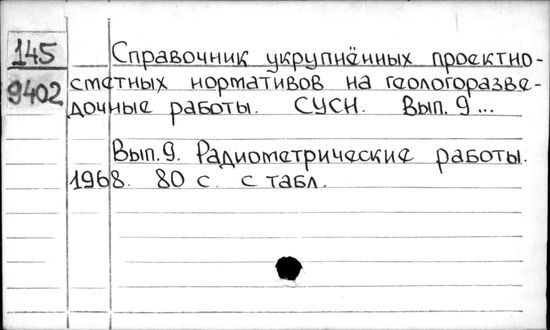 145
9402
Справочник укрупнённых проектно-
сметных нормативов на геологоразве-
дочные работы. СУСН. Вып. 9...
Вып. 9. Радиометрические работы.
1968. 80 с. с табл.